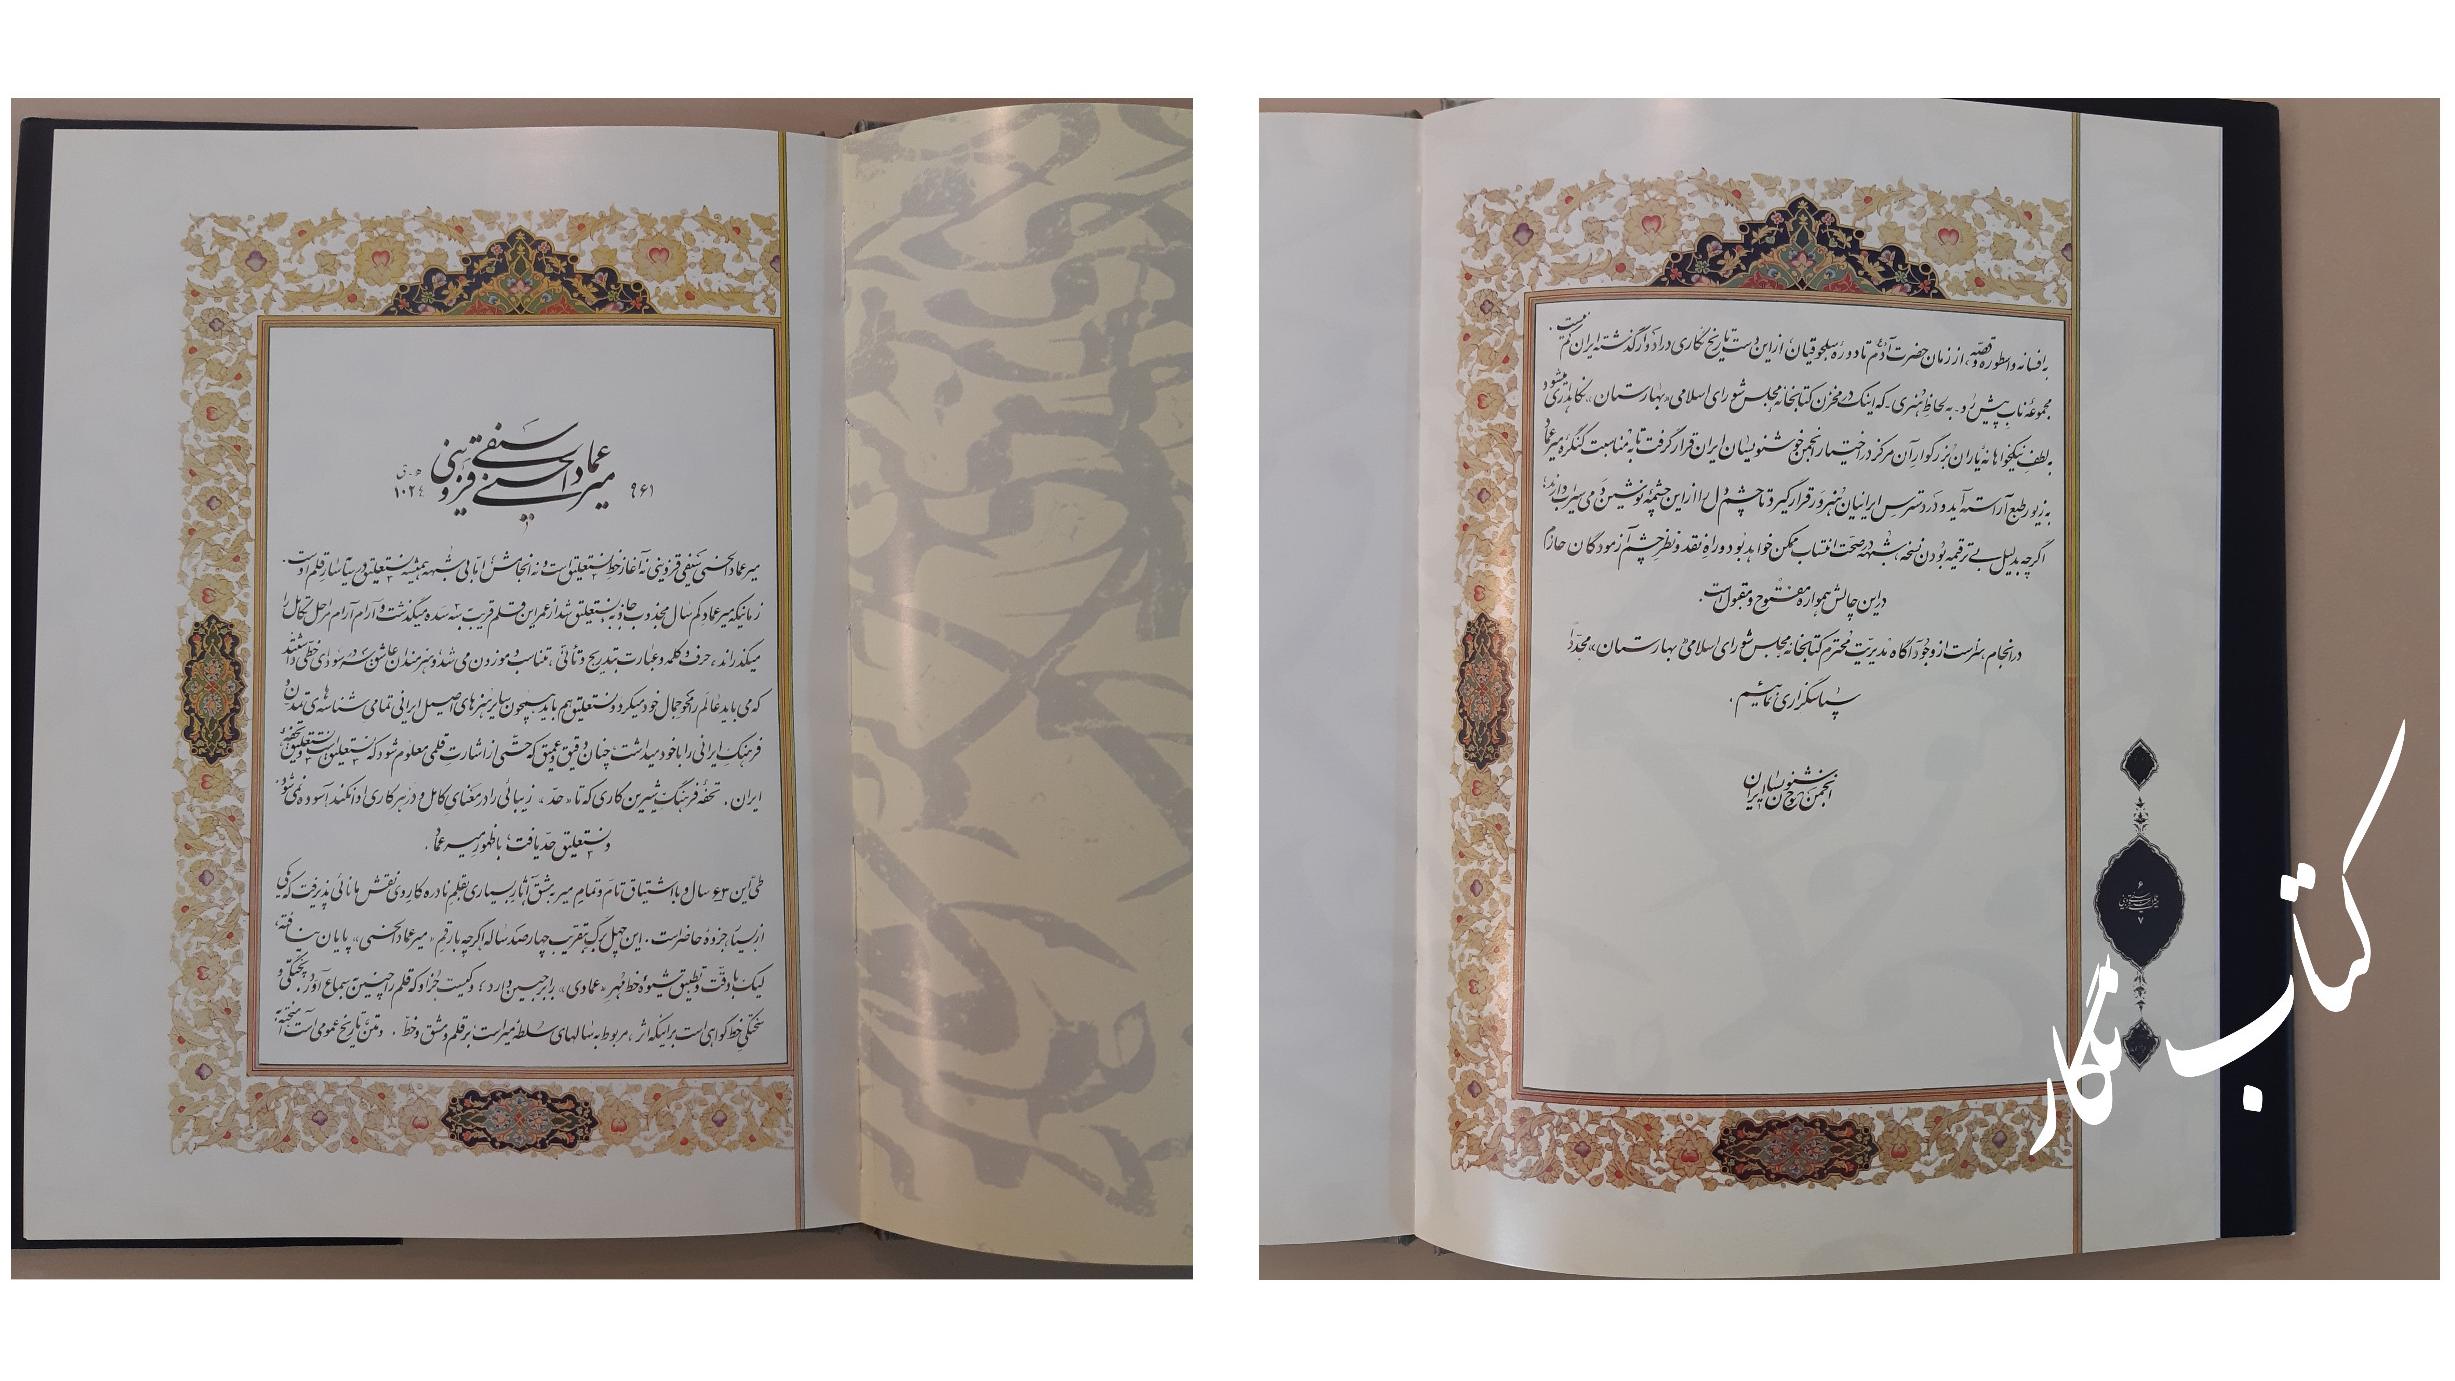 میرعماد الحسنی سیفی قزوینی
۹۶۱
۱۰۲۴ ه‍.ق
میرعماد الحسنی سیفی قزوینی نه آغاز خط نستعلیق است و نه انجامش اما بی شبهه همیشه نستعلیق در سیطره قلم اوست.
زمانیکه میرعماد کم سال مجذوب جاذبه نستعلیق شد از عمر این قلم قریب سه سده میگذشت و آرام آرام مراحل تکامل را
میگذراند، حرف و کلمه و عبارت بتدریج و تأنی، متناسب و موزون می شد و هنرمندان عاشق سر سودای خطی داشتند
که می باید عالم را محو جمال خود میکرد و نستعلیق هم باید همچون سایر هنرهای اصیل ایرانی تمامی شناسه های تمدن و
فرهنگ ایرانی را با خود میداشت، چنان دقیق و عمیق که حتی از اشارت قلمی معلوم شود که نستعلیق است و نستعلیق تحفه
ایران. تحفه فرهنگ شیرین کاری که تا «حد» زیبائی را در معنای کامل و در هر کاری ادا نکند آسوده نمی شود.
و نستعلیق حد یافت، با ظهور میرعماد.
طی این ۶۳ سال و با اشتیاق تام و تمام میر به مشق، آثار بسیاری بقلم نادره کار وی نقش مانائی پذیرفت که یکی
از بسیار جزوه حاضر است. این چهل برگ بتقریب چهارصد ساله اگرچه با رقم «میرعماد الحسنی» پایان نیافته،
لیک با دقت و تطبیق شیوه خط مهر «عمادی» را بر جبین دارد، و کیست جز او که قلم را چنین به سماع آورد. پختگی و
سختگی خط گواهی است بر اینکه اثر، مربوط به سالهای سلطه میر است بر قلم و مشق و خط. و متن تاریخ عمومی است آمیخته
به افسانه و اسطوره و قصه، از زمان حضرت آدم تا دوره سلجوقیان، از این دست تاریخ نگاری در ادوار گذشته ایران کم نیست.
مجموعه ناب پیش رو - به لحاظ هنری - که اینک در مخزن کتابخانه مجلس شورای اسلامی «بهارستان» نگاهداری میشود
به لطف نیکخواهانه یاران بزرگوار آن مرکز در اختیار انجمن خوشنویسان ایران قرار گرفت تا به مناسبت کنگره میرعماد
به زیور طبع آراسته آید و در دسترس ایرانیان هنرور قرار گیرد تا چشم دل را از این چشمه نوشین دمی سیراب دارند،
اگرچه بدلیل بی ترقیمه بودن نسخه، شبهه در صحت انتساب ممکن خواهد بود و راه نقد و نظر چشم آزمودگان حازم
در این چالش همواره مفتوح و مقبول است.
در انجام، سزاست از وجود آگاه مدیریت محترم کتابخانه مجلس شورای اسلامی «بهارستان» مجدداً
سپاسگزاری نمائیم.
انجمن خوشنویسان ایران
۶
۷
کتاب نگار